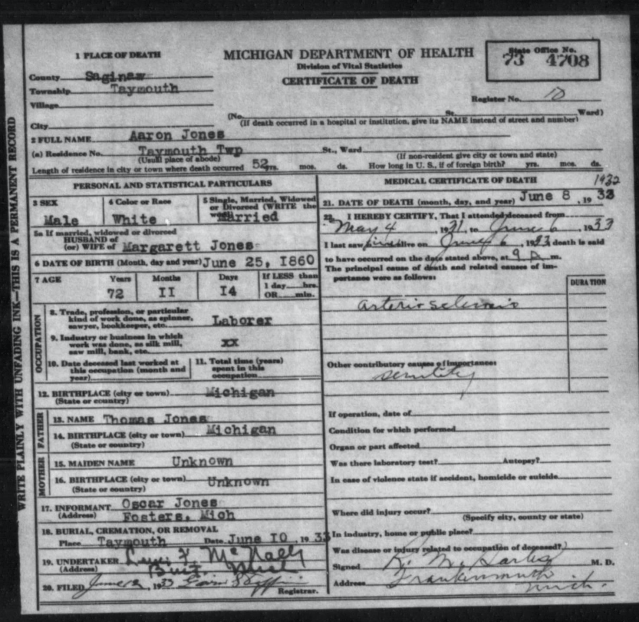 1 PLACE OF DEATH
MICHIGAN DEPARTMENT OF HEALTH
Division of Vital Statistics
CERTIFICATE OF DEATH
State Office No.
73 4708
County Saginaw
Township Taymouth
Village
City
Register No.
(No. St. Ward)
(If death occurred in a hospital or institution, give its NAME instead of street and number)
2 FULL NAME Aaron Jones
(a) Residence No. Taymouth Twp St., Ward.
(Usual place of abode) (If non-resident give city or town and state)
Length of residence in city or town where death occurred 52 yrs. mos. ds. How long in U. S., if of foreign birth? yrs. mos. ds.
PERSONAL AND STATISTICAL PARTICULARS
3 SEX
Male
4 Color or Race
White
5 Single, Married, Widowed or Divorced (WRITE the word)
Married
5a If married, widowed or divorced
HUSBAND of
(or) WIFE of Margarett Jones
6 DATE OF BIRTH (Month, day and year) June 25, 1860
7 AGE Years Months Days If LESS than
1 day, hrs.
OR min.
72 II I4
OCCUPATION
8. Trade, profession, or particular
kind of work done, as spinner,
sawyer, bookkeeper, etc. Laborer
9. Industry or business in which
work was done, as silk mill,
saw mill, bank, etc. xx
10. Date deceased last worked at
this occupation (month and
year)
11. Total time (years)
spent in this
occupation
12. BIRTHPLACE (city or town) Michigan
(State or country)
FATHER
13. NAME Thomas Jones
14. BIRTHPLACE (city or town) Michigan
(State or country)
MOTHER
15. MAIDEN NAME Unknown
16. BIRTHPLACE (city or town) Unknown
(State or country)
17. INFORMANT Oscar Jones
(Address) Fosters, Mich
18. BURIAL, CREMATION, OR REMOVAL
Place Taymouth Date June I0, 1933
19. UNDERTAKER McNally
(Address) Mich
20. FILED 1933
Registrar.
MEDICAL CERTIFICATE OF DEATH
1932
21. DATE OF DEATH (month, day, and year) June 8, 1933
22. I HEREBY CERTIFY, That I attended deceased from
May 4 1931, to June 6 1933
I last saw alive on June 6 1933 death is said
to have occurred on the date stated above, at 9 P. m.
The principal cause of death and related causes of im-
portance were as follows:
DURATION
arterio sclerosis
Other contributory causes of importance:
senility
If operation, date of
Condition for which performed
Organ or part affected
Was there laboratory test? Autopsy?
In case of violence state if accident, homicide or suicide
Where did injury occur?
(Specify city, county or state)
In industry, home or public place?
Was disease or injury related to occupation of deceased?
Signed M. D.
Address Frankenmuth
Mich.
WRITE PLAINLY WITH UNFADING INK—THIS IS A PERMANENT RECORD